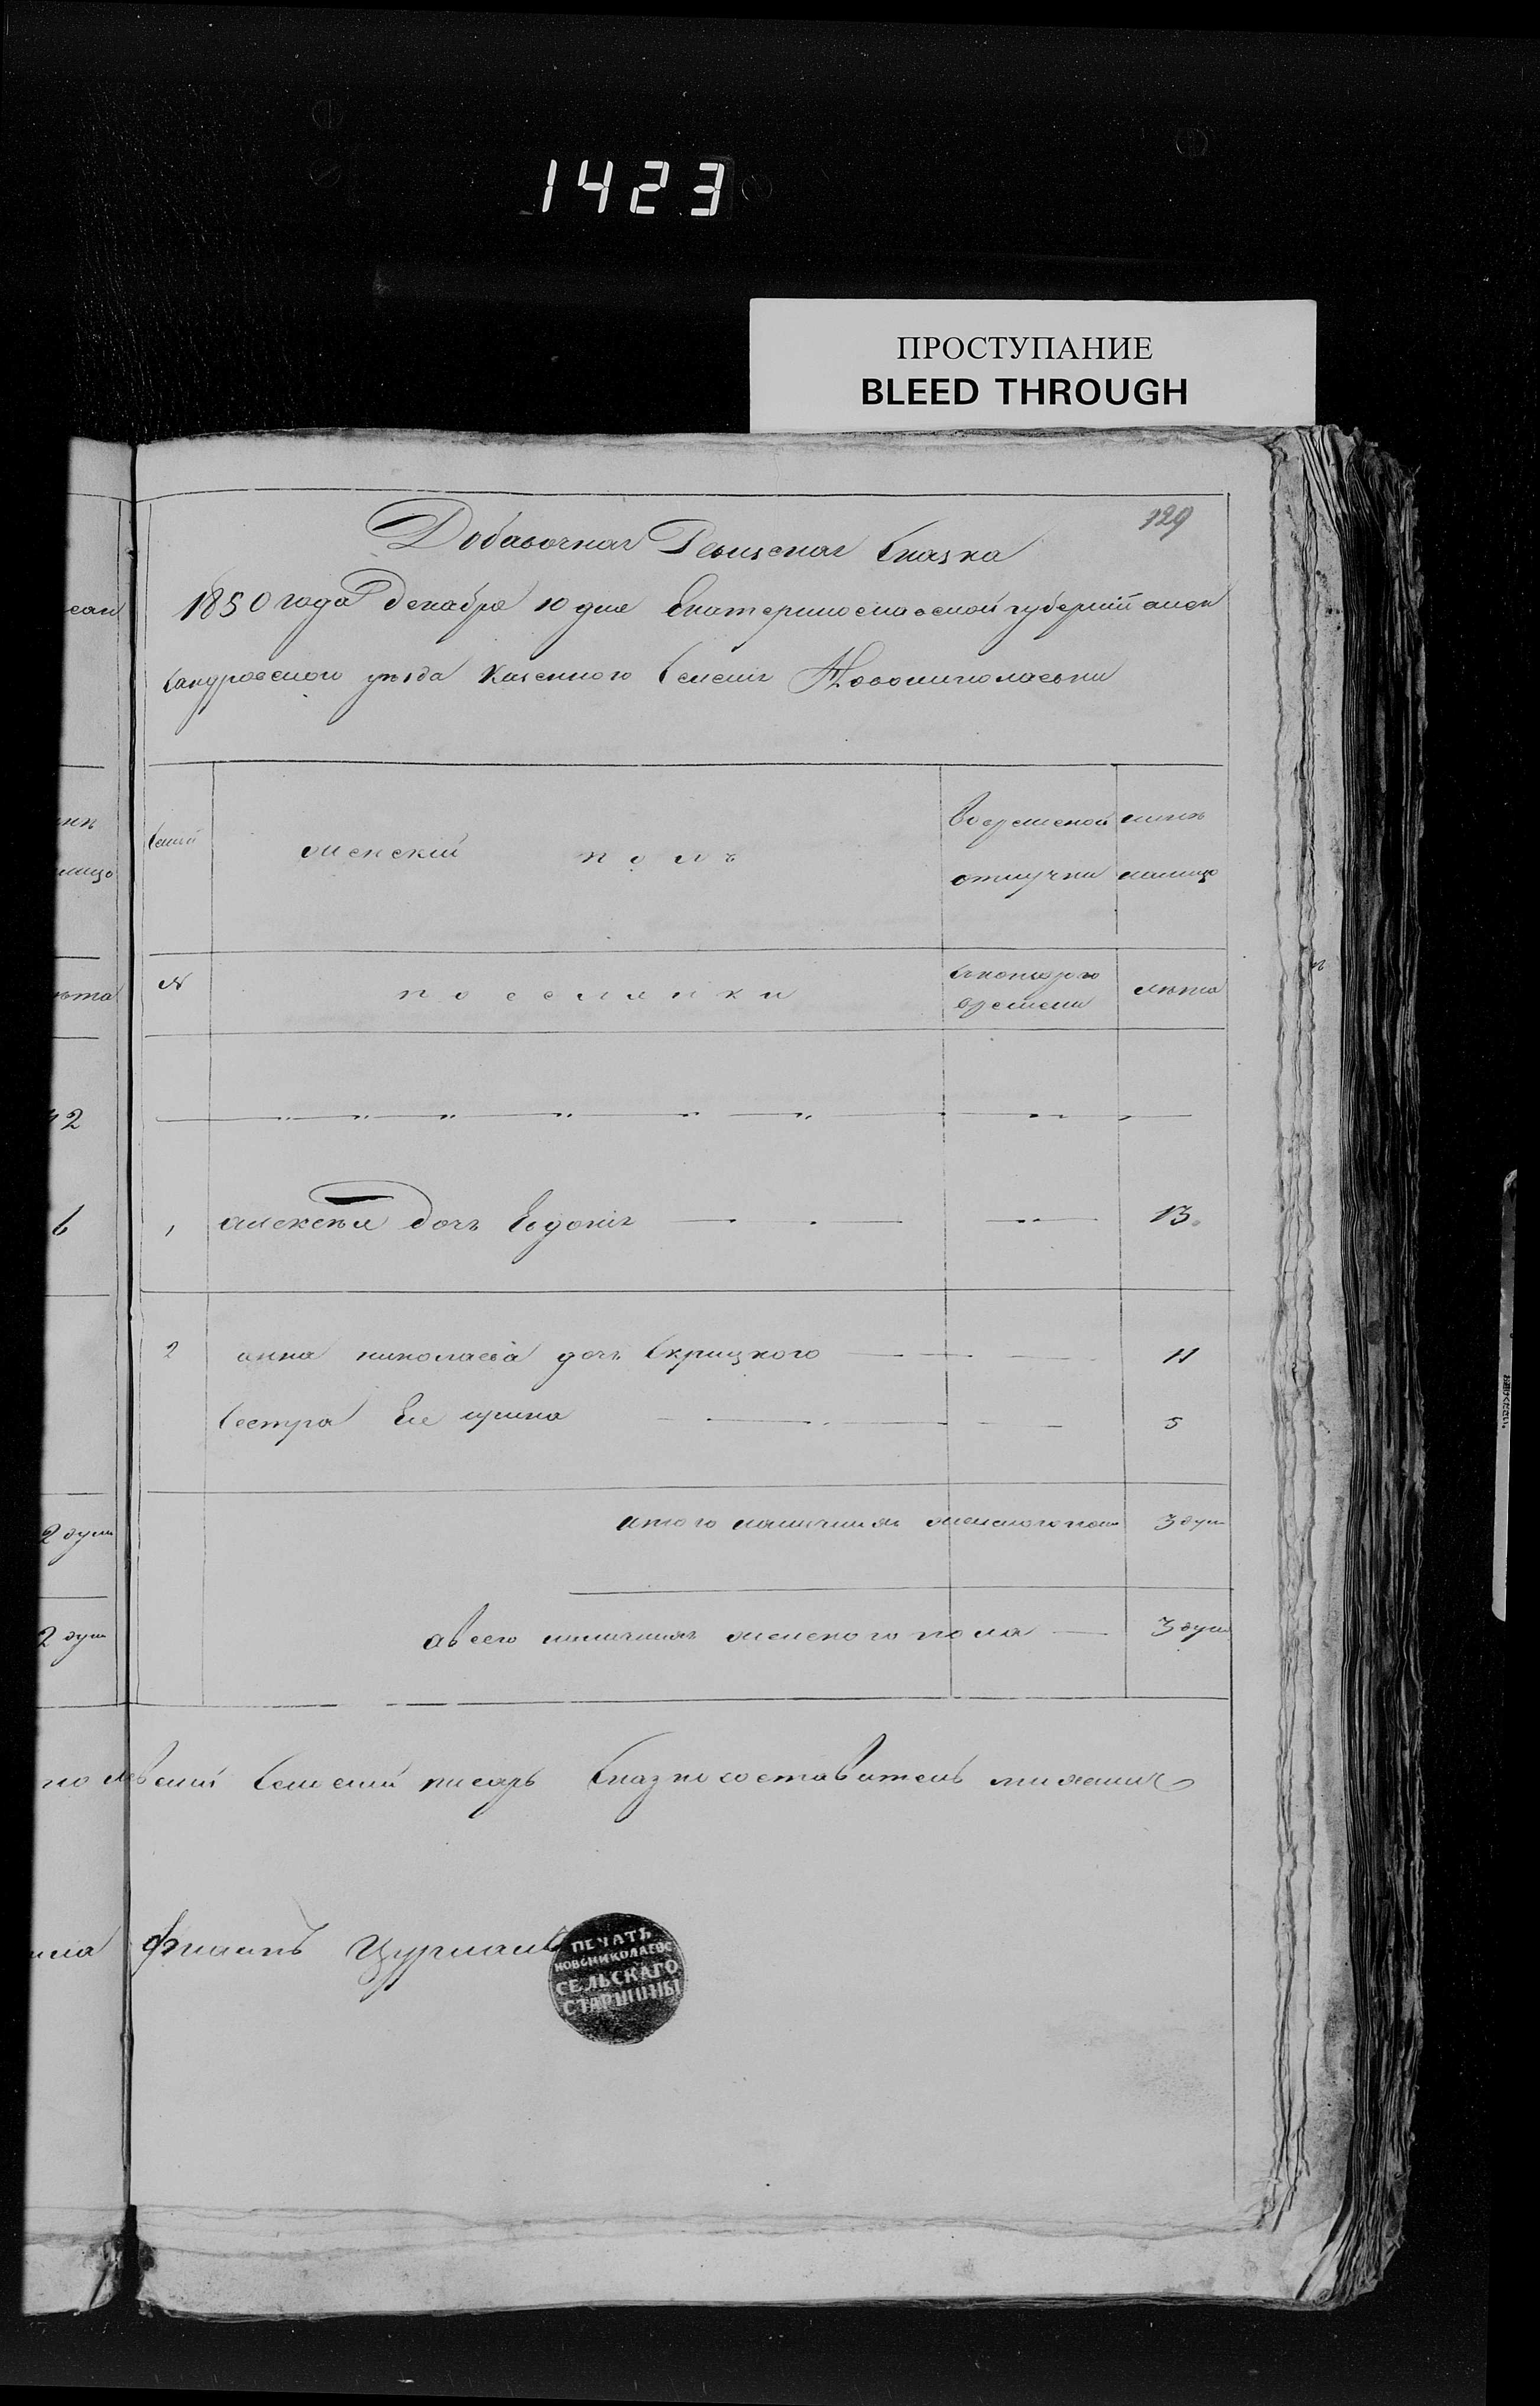 1423
ПРОСТУПАНИЕ
BLEED THROUGH
129
Добавочная Ревизская Сказка
1850 года Декабря 10 дня Екатеринославской губернии алек
сандровского уезда Казенного Селения Новониколаевки
семей
женский полъ
во временной отлучки
нынѣ налицо
№
поселянки
с котораго времени
лѣта
1 алексѣя дочь Евдокия 13
2 анна николаева дочь Скрицкого 11
Сестра Ее ирина 5
итого наличных женского пола 3 душ
а всего наличных женского пола 3 душ
Сельский писарь Сказкосоставитель
Филипъ
ПЕЧАТЬ
НОВОНИКОЛАЕВС
СЕЛЬСКАГО
СТАРШИНЫ